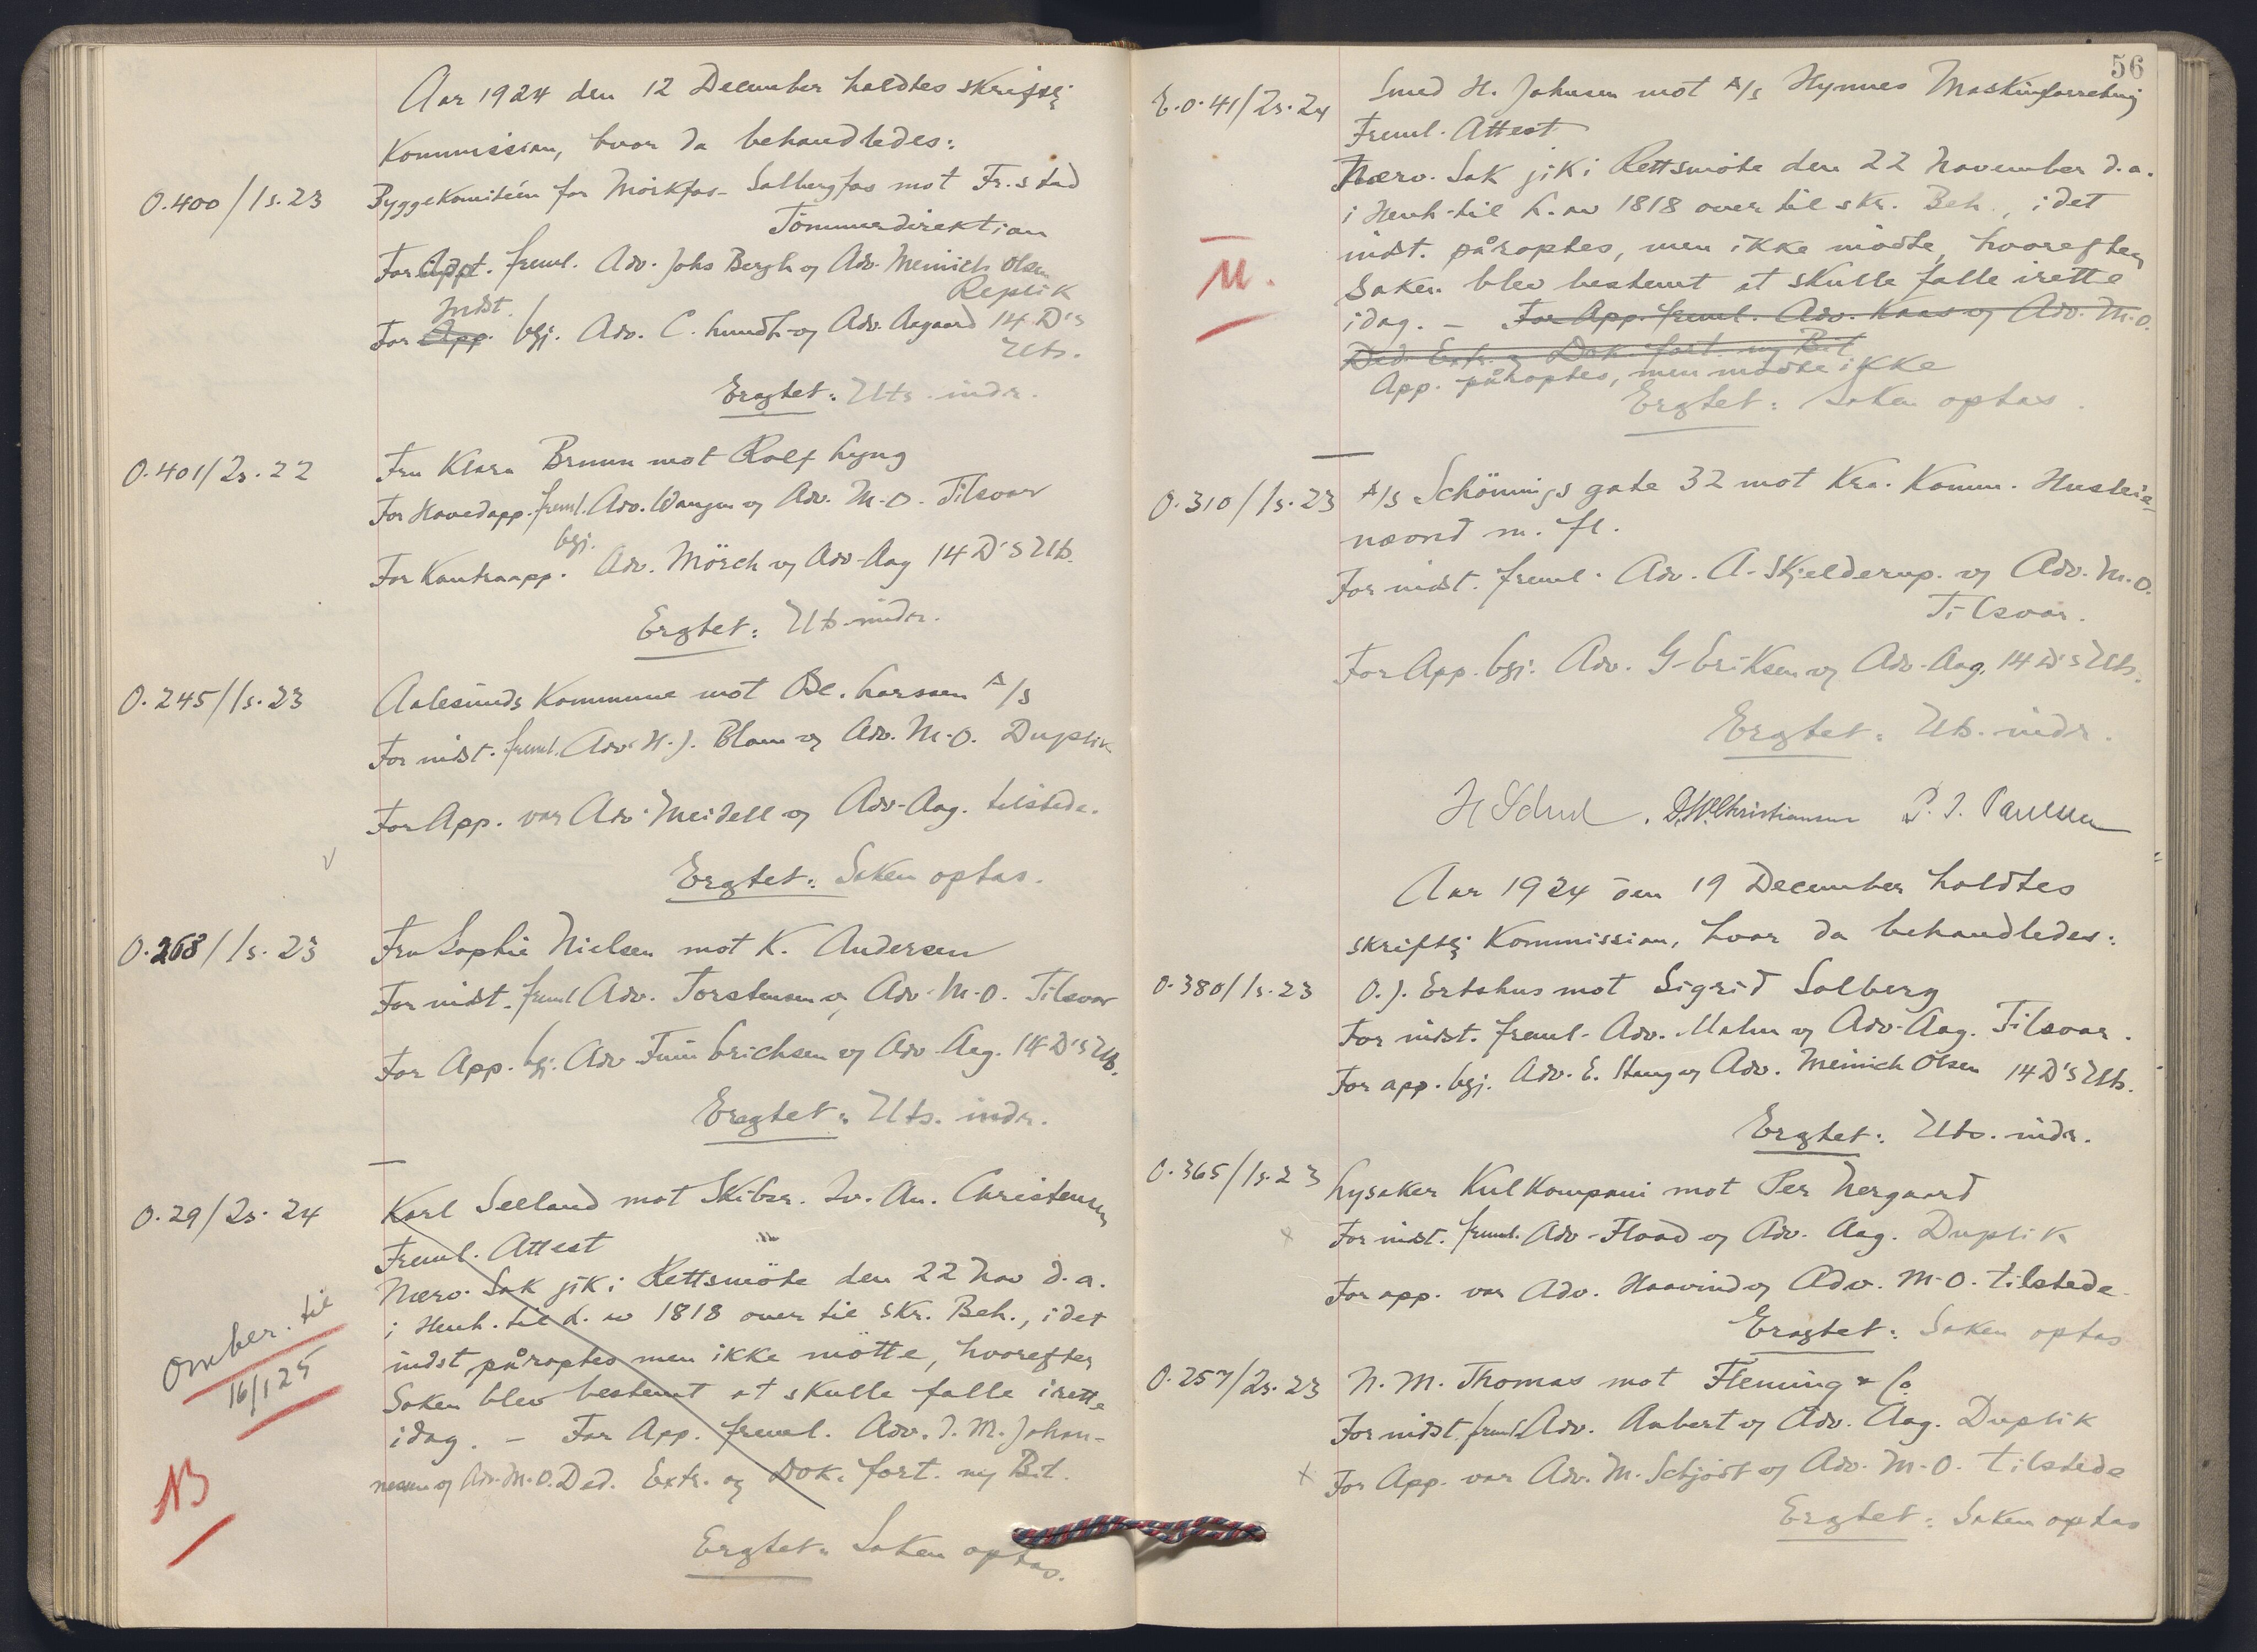 Aar 1924 den 12 December holdtes skriftlg
Kommission, hvor da behandledes:
O.400/1s.23 Byggekomitéen for Mörkfos-Solbergfos mot Fr.stad
Tömmerdirektion
For Appt. freml. Adv. Johs Bergh og Adv. Meinich Olsen
Replik
Indst.
For App. bgj. Adv. C. Lundh og Adv. Aagaard 14 D's
Uts.
Eragtet: Uts. indr.
O.401/2s.22 Fru Klara Bruun mot Rolf Lyng
For Hovedapp. freml. Adv. Wangen og Adv. M-O. Tilsvar
bgj.
For Kontraapp. Adv. Mörch og Adv-Aag 14 D'S Uts.
Ergtet: Uts indr.
O.245/1s.23 Aalesunds Kommune mot Ole Larssen A/S
For indst. freml. Adv. H.J. Blom og Adv. M-O. Duplik
For App. var Adv. Meidell og Adv-Aag. tilstede.
Ergtet: Saken optas.
O.268/1s.23 Fru Sophie Nielsen mot K. Andersen
For indst. freml Adv. Torstensen og Adv. M-O. Tilsvar
For App. bgj. Adv Erichsen og Adv Aag. 14 D's Uts.
Eragtet: Uts. indr.
O.29/2s.24 Karl Seeland mot Skibsr. Av. An. Christensen
Freml. Attest
Nærv. Sak gik i Rettsmöte den 22 Nov d.a.
i Henh. til L. av 1818 over til skr. Beh., idet
indst påroptes men ikke mötte, hvorefter
Saken blev bestemt at skulle falle irette
idag. - For App. freml. Adv. J. M. Johan-
nessen og Adv. M-O. Ded. Extr. og Dok. fort. ny Bit.
Omber. til
16/1 25
NB
Ergtet: Saken optas.
56
E.O.41/2s.24 Smed H. Johnsen mot A/S Hynnes Maskinforretning
Freml. Attest
Nærv. Sak gik i Rettsmöte den 22 November d.a.
i Henh-til L. av 1818 over til skr. Beh., idet
indst. påroptes, men ikke mödte, hvorefter
Saken blev bestemt at skulle falle irette
M.
idag. - For App. freml. Adv. Kaas og Adv. M-O.
Ded. Extr. og Dok. fort. ny Bit
App. påroptes, men mödte ikke
Ergtet: Saken optas.
O.310/1s.23 A/S Schönnings gate 32 mot Kra. Komm. Husleie-
nævnd m. fl.
For indst. freml. Adv. A. Skjelderup. og Adv. M-O.
Tilsvar.
For App. bgj. Adv. G-Eriksen og Adv-Aag. 14 D's Uts.
Ergtet: Uts. indr.
D.W. Christiansen P. I. Paulsen
Aar 1924 den 19 December holdtes
skriftlg Kommission, hvor da behandledes:
O.380/1s.23 O.J. Ertshus mot Sigrid Solberg
For indst. freml. Adv. Malm og Adv-Aag. Tilsvar.
For app. bgj. Adv. E. Stang og Adv. Meinich Olsen 14 D's Uts.
Ergtet: Uts. indr.
O.365/1s.23 Lysaker Kulkompani mot Per Nergaard
x For indst. freml. Adv-Flood og Adv. Aag. Duplik
For app. var Adv. Haavind og Adv. M-O. tilstede
Eragtet: Saken optas
O.257/2s.23 N. M. Thomas mot Fleming & Co
For indst. freml. Adv. Aubert og Adv. Aag. Duplik
x For App. var Adv. M. Schjödt og Adv. M-O. tilstede
Ergtet: Saken optas